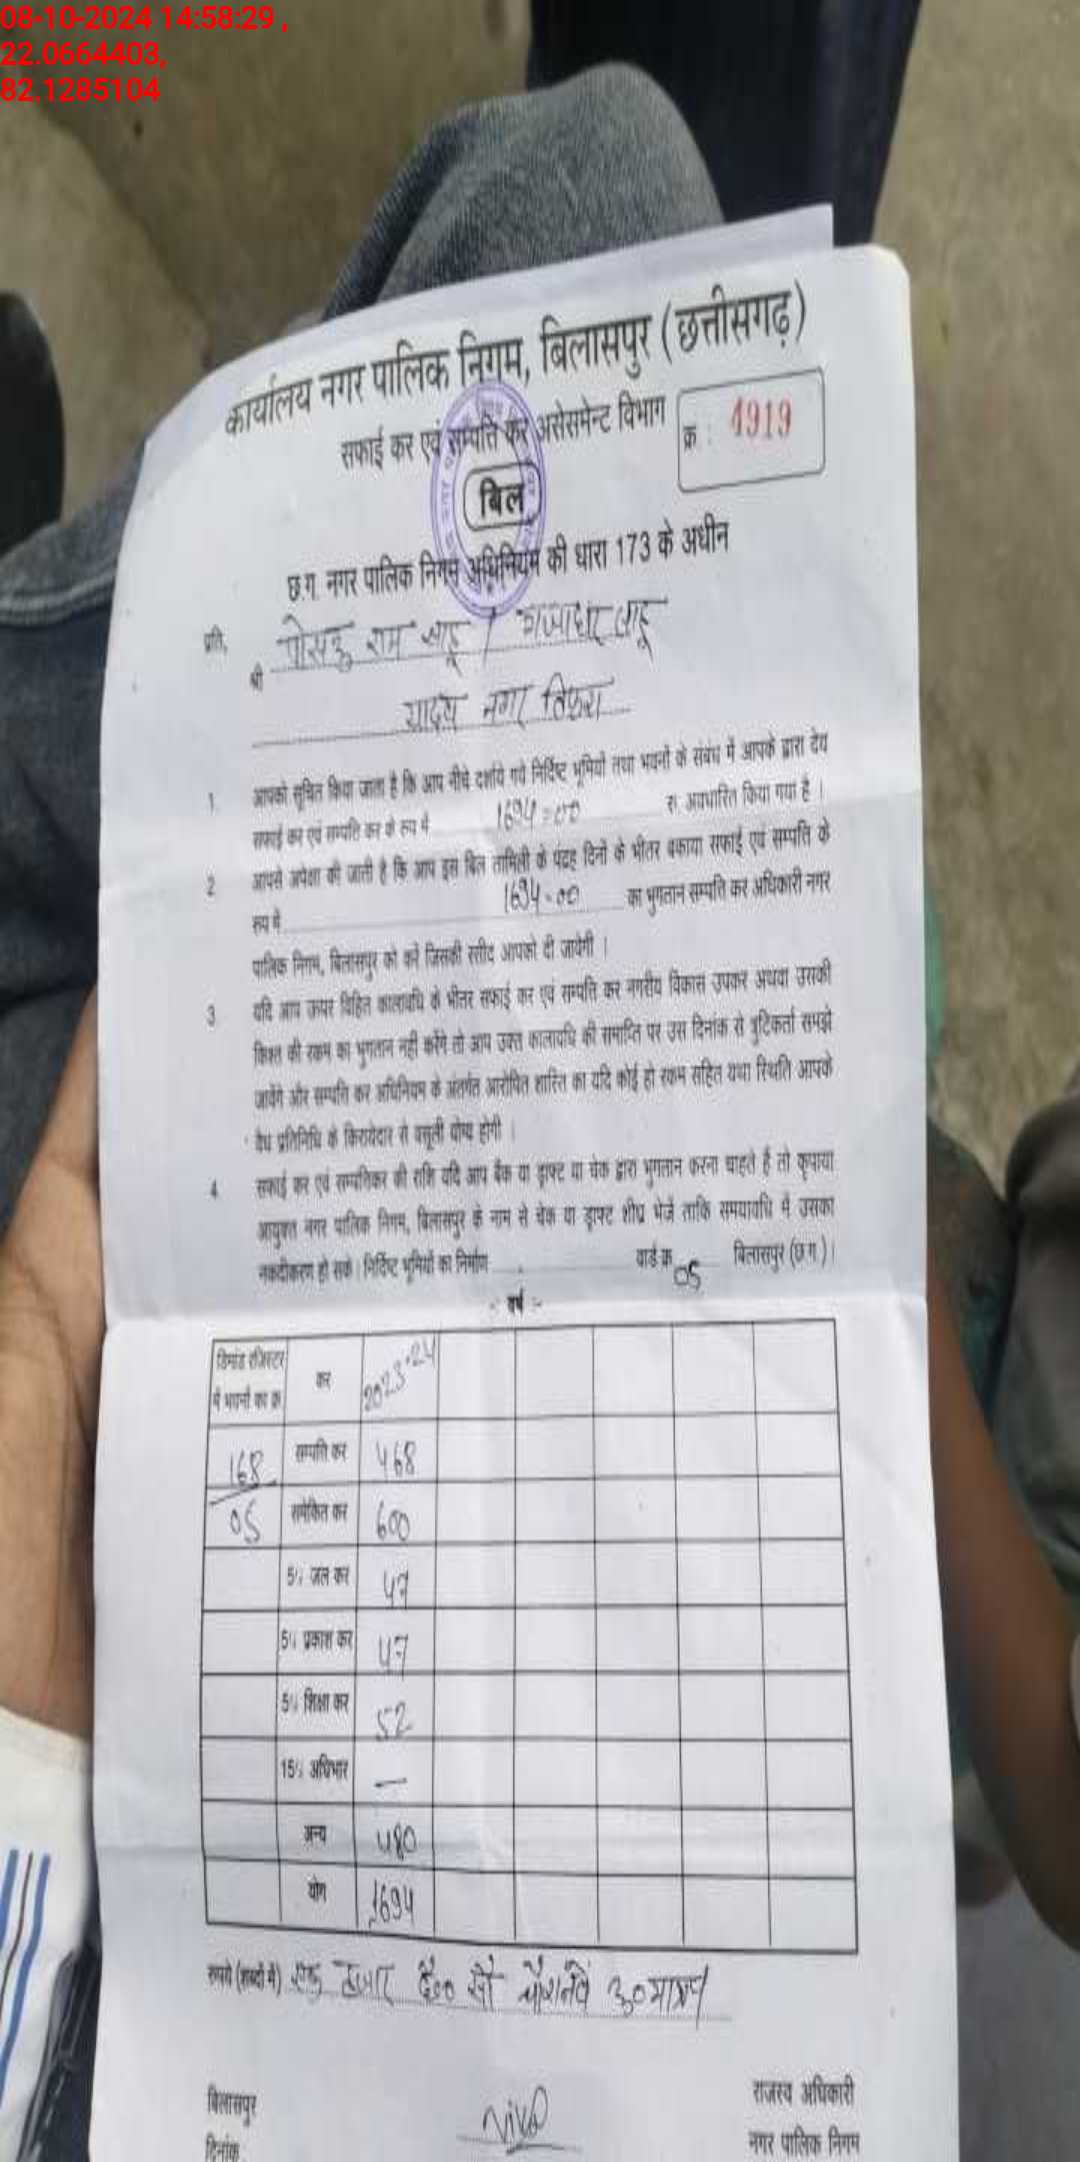 08-10-2024 14:58:29 ,
22.0664403,
82.1285104
कार्यालय नगर पालिक निगम, बिलासपुर (छत्तीसगढ़)
सफाई कर एवं सम्पत्ति कर असेसमेन्ट विभाग
क्र : 4919
बिल
छ.ग. नगर पालिक निगम अधिनियम की धारा 173 के अधीन
प्रति,
श्री राम साहू / गजाधर साहू
यादव नगर तिफरा
1. आपको सूचित किया जाता है कि आप नीचे दर्शाये गये निर्दिष्ट भूमियों तथा भवनों के संबंध में आपके द्वारा देय
सफाई कर एवं सम्पति कर के रूप में 1694=00 रु. अवधारित किया गया है ।
2 आपसे अपेक्षा की जाती है कि आप इस बिल तामिली के पंद्रह दिनों के भीतर बकाया सफाई एवं सम्पति के
रूप में 1694=00 का भुगतान सम्पति कर अधिकारी नगर
पालिक निगम, बिलासपुर को करें जिसकी रसीद आपको दी जायेगी ।
3 यदि आप ऊपर विहित कालावधि के भीतर सफाई कर एवं सम्पति कर नगरीय विकास उपकर अथवा उसकी
किश्त की रकम का भुगतान नही करेंगे तो आप उक्त कालावधि की समाप्ति पर उस दिनांक से त्रुटिकर्ता समझे
जावेंगे और सम्पति कर अधिनियम के अंतर्गत आरोपित शास्ति का यदि कोई हो रकम सहित यथा स्थिति आपके
वैध प्रतिनिधि के किरायेदार से वसूली योग्य होगी ।
4. सफाई कर एवं सम्पत्तिकर की राशि यदि आप बैंक या ड्राफ्ट या चेक द्वारा भुगतान करना चाहते हैं तो कृपाया
आयुक्त नगर पालिक निगम, बिलासपुर के नाम से चेक या ड्राफ्ट शीघ्र भेजें ताकि समयावधि में उसका
नकदीकरण हो सके। निर्दिष्ट भूमियों का निर्माण वार्ड क्र. 05 बिलासपुर (छ.ग.)।
-: वर्ष :-
डिमांड रजिस्टर में भवनों का क्र. कर 2023-24
168 सम्पत्ति कर 468
05 समेकित कर 600
5% जल कर 47
5% प्रकाश कर 47
5% शिक्षा कर 52
15% अधिभार —
अन्य 480
योग 1694
रूपये (शब्दों में) एक हजार छै० सौ चौरानवें रु० मात्र
बिलासपुर
राजस्व अधिकारी
दिनांक
नगर पालिक निगम